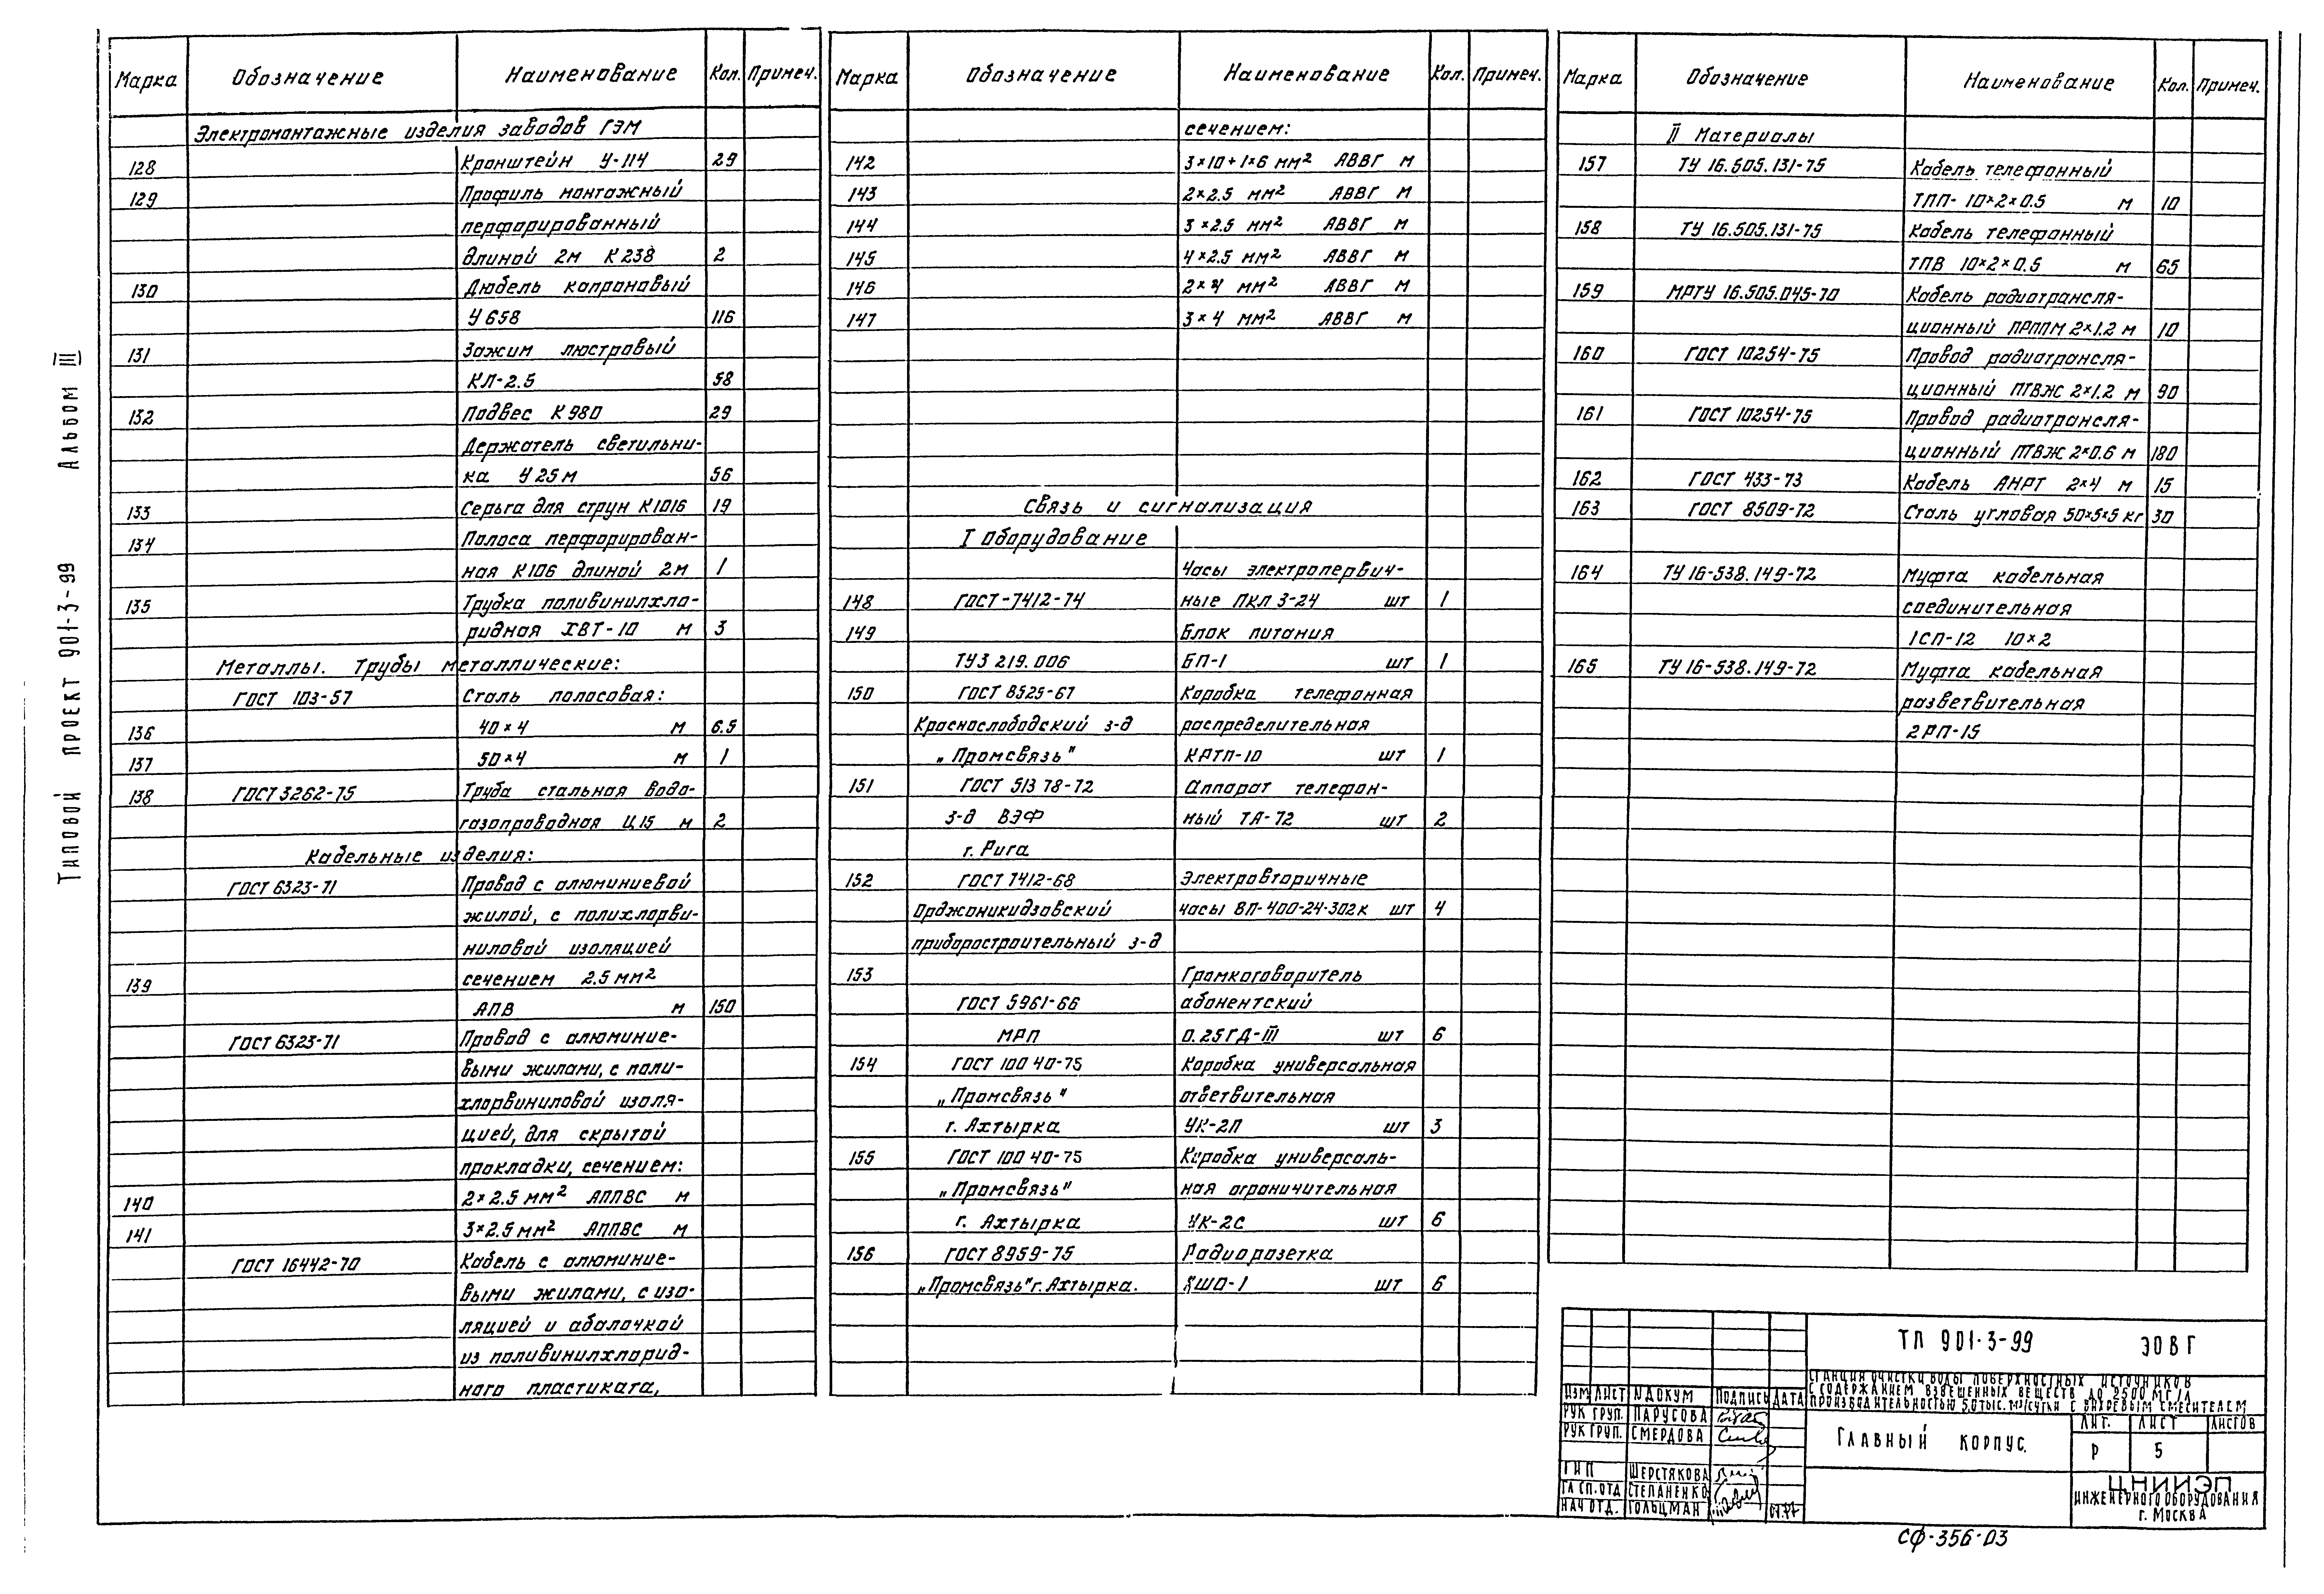 Типовой проект 901-3-99 Альбом III
Марка Обозначение Наименование Кол. Примеч.
Электромонтажные изделия заводов ГЭМ
128 Кронштейн У-114 29
129 Профиль монтажный
перфорированный
длиной 2м К 238 2
130 Дюбель капроновый
У 658 116
131 Зажим люстровый
КЛ-2.5 58
132 Подвес К 980 29
Держатель светильни-
ка У 25 м 56
133 Серьга для струн К1016 19
134 Полоса перфорирован-
ная К106 длиной 2м 1
135 Трубка поливинилхло-
ридная ХВТ-10 м 3
Металлы. Трубы металлические:
ГОСТ 103-57 Сталь полосовая:
136 40×4 м 6.5
137 50×4 м 1
138 ГОСТ 3262-75 Труба стальная водо-
газопроводная Ц.15 м 2
Кабельные изделия:
ГОСТ 6323-71 Провод с алюминиевой
жилой, с полихлорви-
ниловой изоляцией
139 сечением 2.5 мм²
АПВ м 150
ГОСТ 6323-71 Провод с алюминие-
выми жилами, с поли-
хлорвиниловой изоля-
цией, для скрытой
прокладки, сечением:
140 2×2.5 мм² АППВС м
141 3×2.5 мм² АППВС м
ГОСТ 16442-70 Кабель с алюминие-
выми жилами, с изо-
ляцией и оболочкой
из поливинилхлорид-
ного пластиката,
Марка Обозначение Наименование Кол. Примеч.
сечением:
142 3×10+1×6 мм² АВВГ м
143 2×2.5 мм² АВВГ м
144 3×2.5 мм² АВВГ м
145 4×2.5 мм² АВВГ м
146 2×4 мм² АВВГ м
147 3×4 мм² АВВГ м
Связь и сигнализация
I Оборудование
Часы электропервич-
148 ГОСТ-7412-74 ные ПКЛ 3-24 шт 1
149 Блок питания
ТУЗ 219.006 БП-1 шт 1
150 ГОСТ 8525-67 Коробка телефонная
Краснослободский з-д распределительная
„Промсвязь" КРТП-10 шт 1
151 ГОСТ 513 78-72 Аппарат телефон-
з-д ВЭФ ный ТА-72 шт 2
г. Рига
152 ГОСТ 7412-68 Электровторичные
Орджоникидзовский часы ВП-400-24-302к шт 4
приборостроительный з-д
153 Громкоговоритель
ГОСТ 5961-66 абонентский
МРП 0.25 ГД-III шт 6
154 ГОСТ 100 40-75 Коробка универсальная
„Промсвязь" ответвительная
г. Ахтырка УК-2П шт 3
155 ГОСТ 100 40-75 Коробка универсаль-
„Промсвязь" ная ограничительная
г. Ахтырка УК-2С шт 6
156 ГОСТ 8959-75 Радиорозетка
„Промсвязь" г. Ахтырка. ШО-1 шт 6
Марка Обозначение Наименование Кол. Примеч.
II Материалы
157 ТУ 16.505.131-75 Кабель телефонный
ТПП- 10×2×0.5 м 10
158 ТУ 16.505.131-75 Кабель телефонный
ТПВ 10×2×0.5 м 65
159 МРТУ 16.505.045-70 Кабель радиотрансля-
ционный ПРППМ 2×1.2 м 10
160 ГОСТ 10254-75 Провод радиотрансля-
ционный ПТВЖ 2×1.2 м 90
161 ГОСТ 10254-75 Провод радиотрансля-
ционный ПТВЖ 2×0.6 м 180
162 ГОСТ 433-73 Кабель АНРТ 2×4 м 15
163 ГОСТ 8509-72 Сталь угловая 50×5×5 кг 30
164 ТУ 16-538.149-72 Муфта кабельная
соединительная
1СП-12 10×2
165 ТУ 16-538.149-72 Муфта кабельная
разветвительная
2РП-15
ТП 901-3-99 ЭОВГ
Станция очистки воды поверхностных источников
с содержанием взвешенных веществ до 2500 мг/л
производительностью 5.0 тыс. м³/сутки с вихревым смесителем
Изм Лист № докум Подпись Дата
Рук груп. Парусова
Рук груп. Смердова
ГИП Шерстякова
Гл сп. отд Степаненко
Нач отд. Гольцман
Главный корпус.
Лит. Лист Листов
Р 5
ЦНИИЭП
инженерного оборудования
г. Москва
СФ-356-03